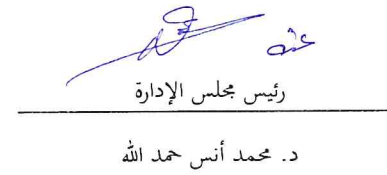 عنه
رئيس مجلس الإدارة
د. محمد أنس حمد الله